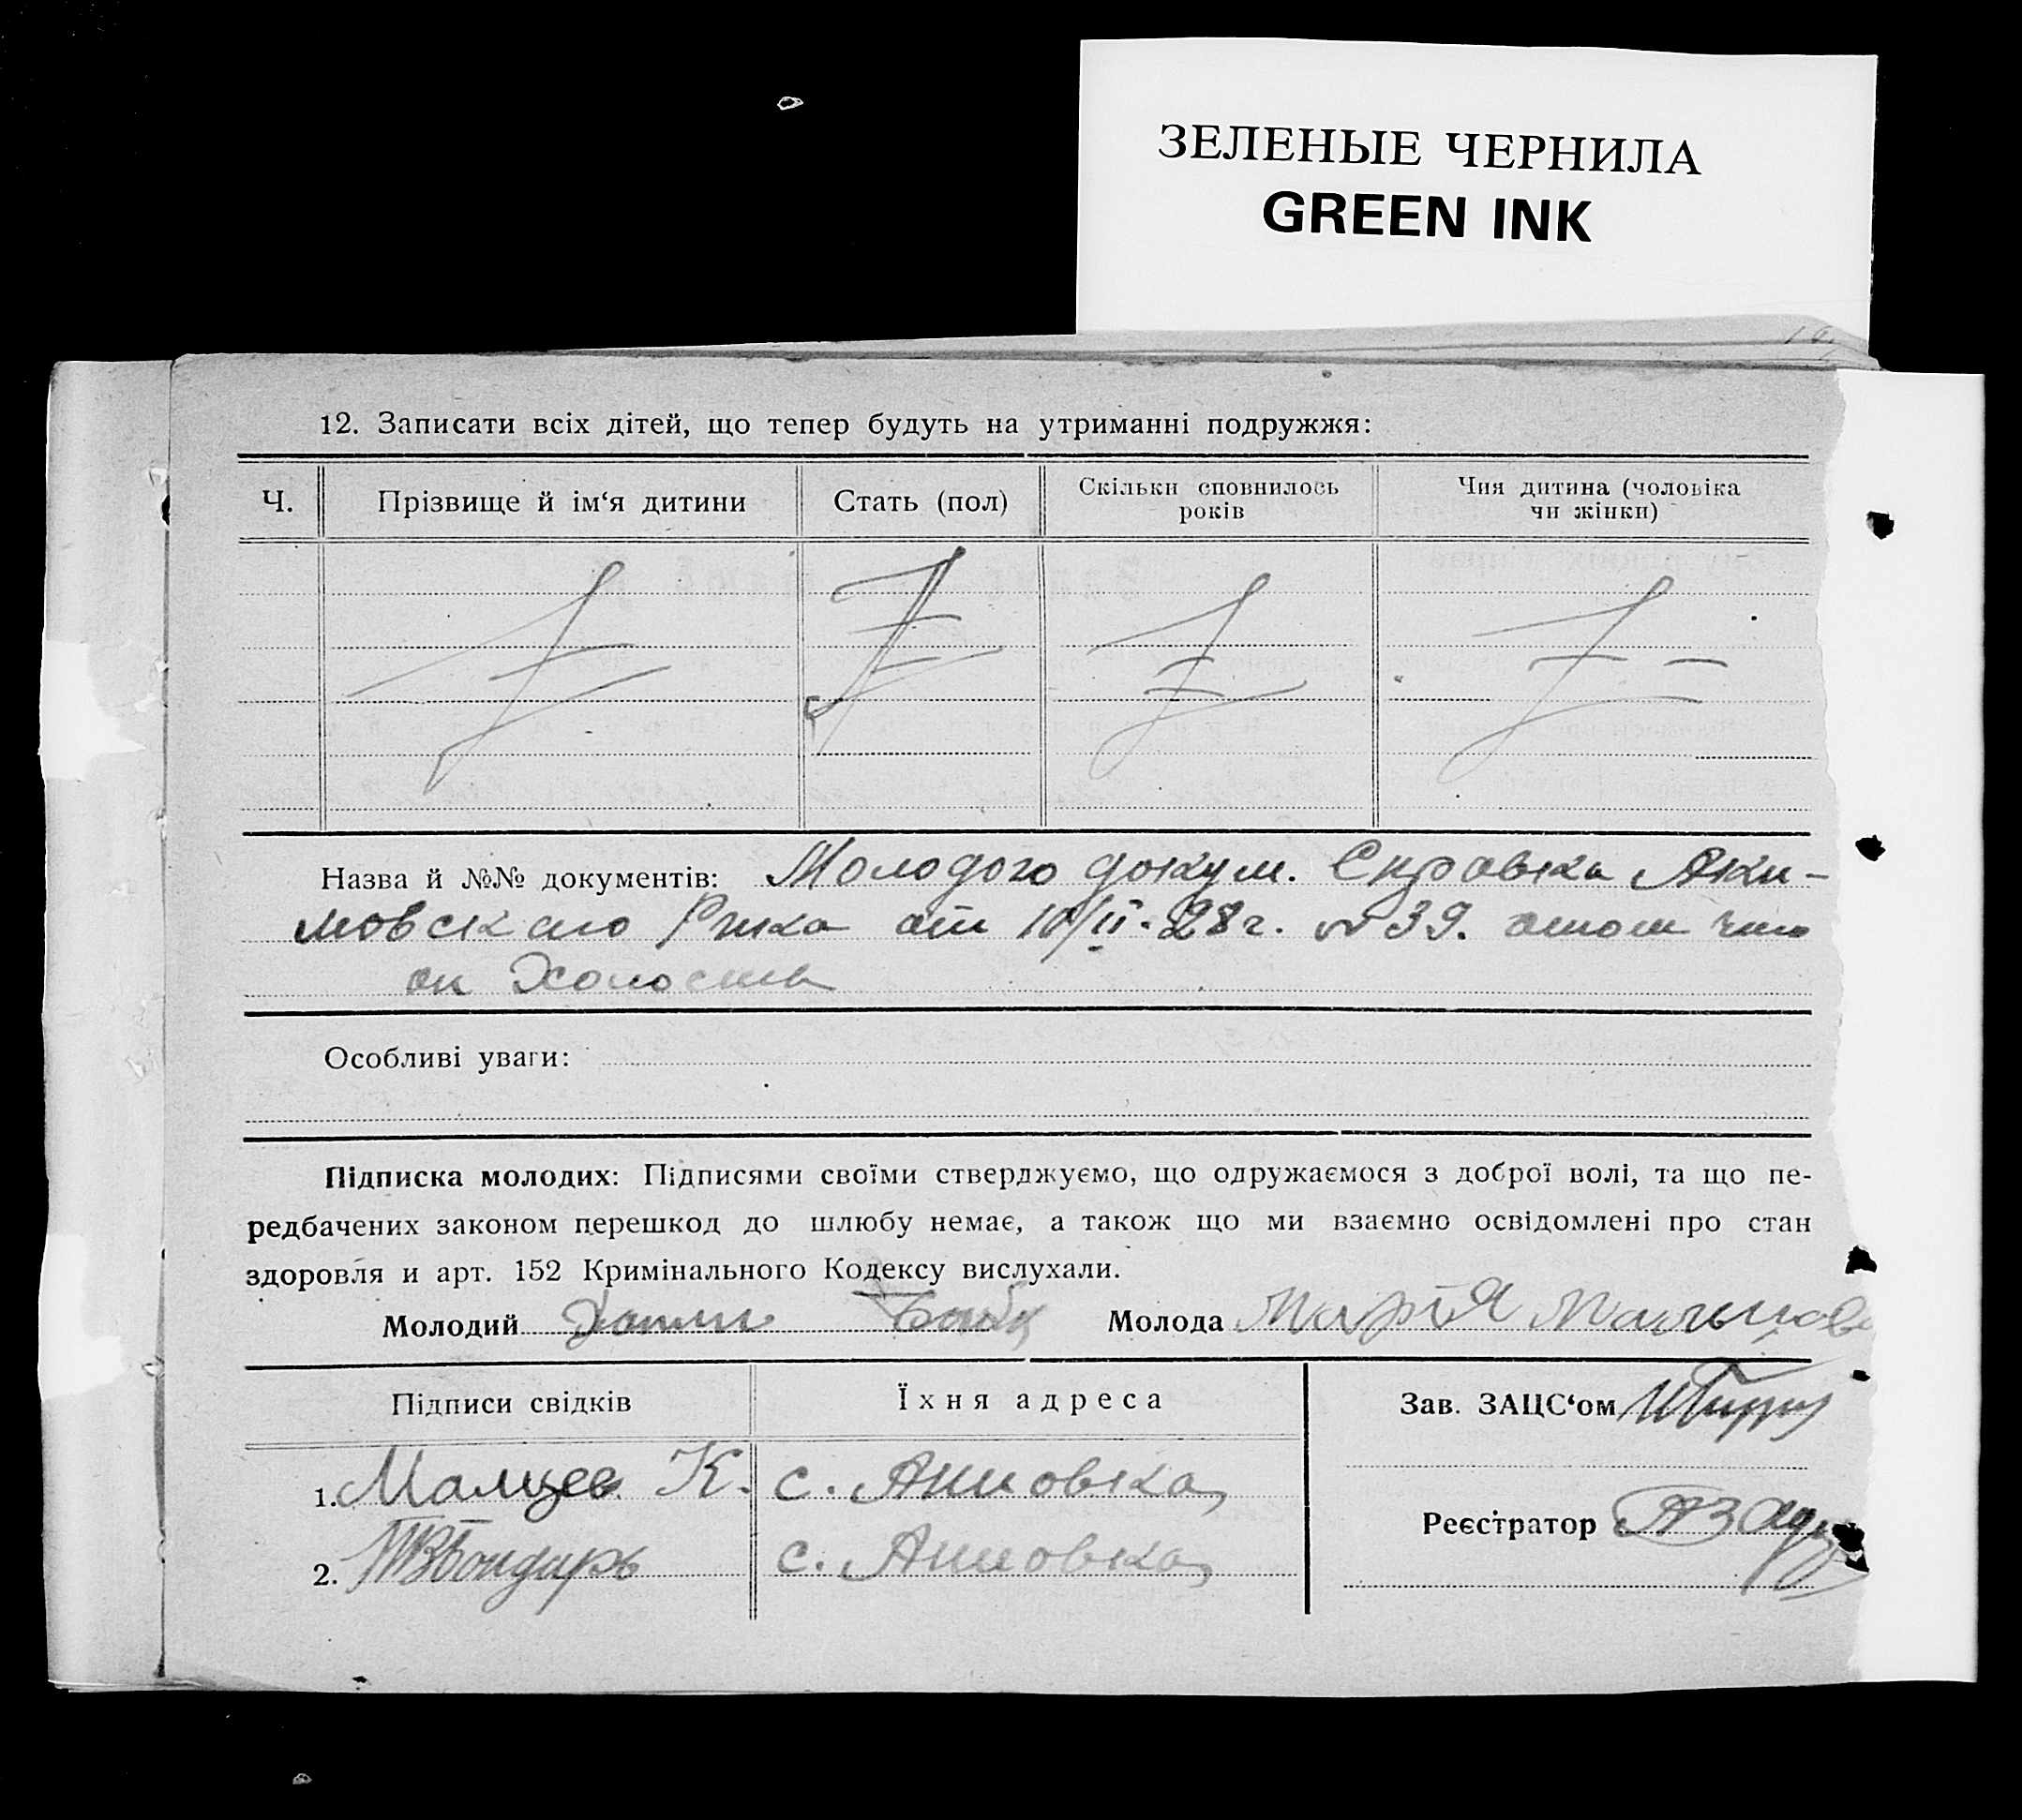 ЗЕЛЕНЫЕ ЧЕРНИЛА
GREEN INK
12. Записати всіх дітей, що тепер будуть на утриманні подружжя:
Ч. Прізвище й ім‘я дитини Стать (пол) Скільки сповнилось років Чия дитина (чоловіка чи жінки)
Назва й №№ документів: Молодого докум. Справка Аки-
мовскаго Рика от 10/II-28г. № 39. отом что
он Холост
Особливі уваги:
Підписка молодих: Підписями своїми стверджуємо, що одружаємося з доброї волі, та що пе-
редбачених законом перешкод до шлюбу немає, а також що ми взаємно освідомлені про стан
здоровля и арт. 152 Кримінального Кодексу вислухали.
Молодий Молода Мария
Підписи свідків Їхня адреса Зав. ЗАЦС‘ом
1. Малцев К. с. Акимовка
Реєстратор
2. Бондарь с. Акимовка